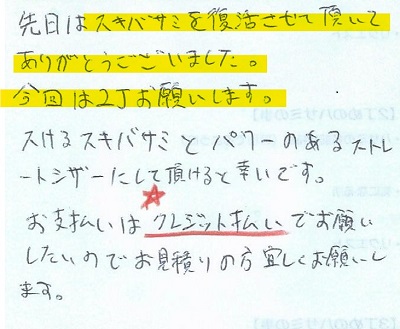 先日はスキバサミを復活させて頂いて
ありがとうございました。
今回は2丁お願いします。
スけるスキバサミとパワーのあるストレ
ートシザーにして頂けると幸いです。
お支払いはクレジット払いでお願い
したいのでお見積りの方宜しくお願いし
ます。